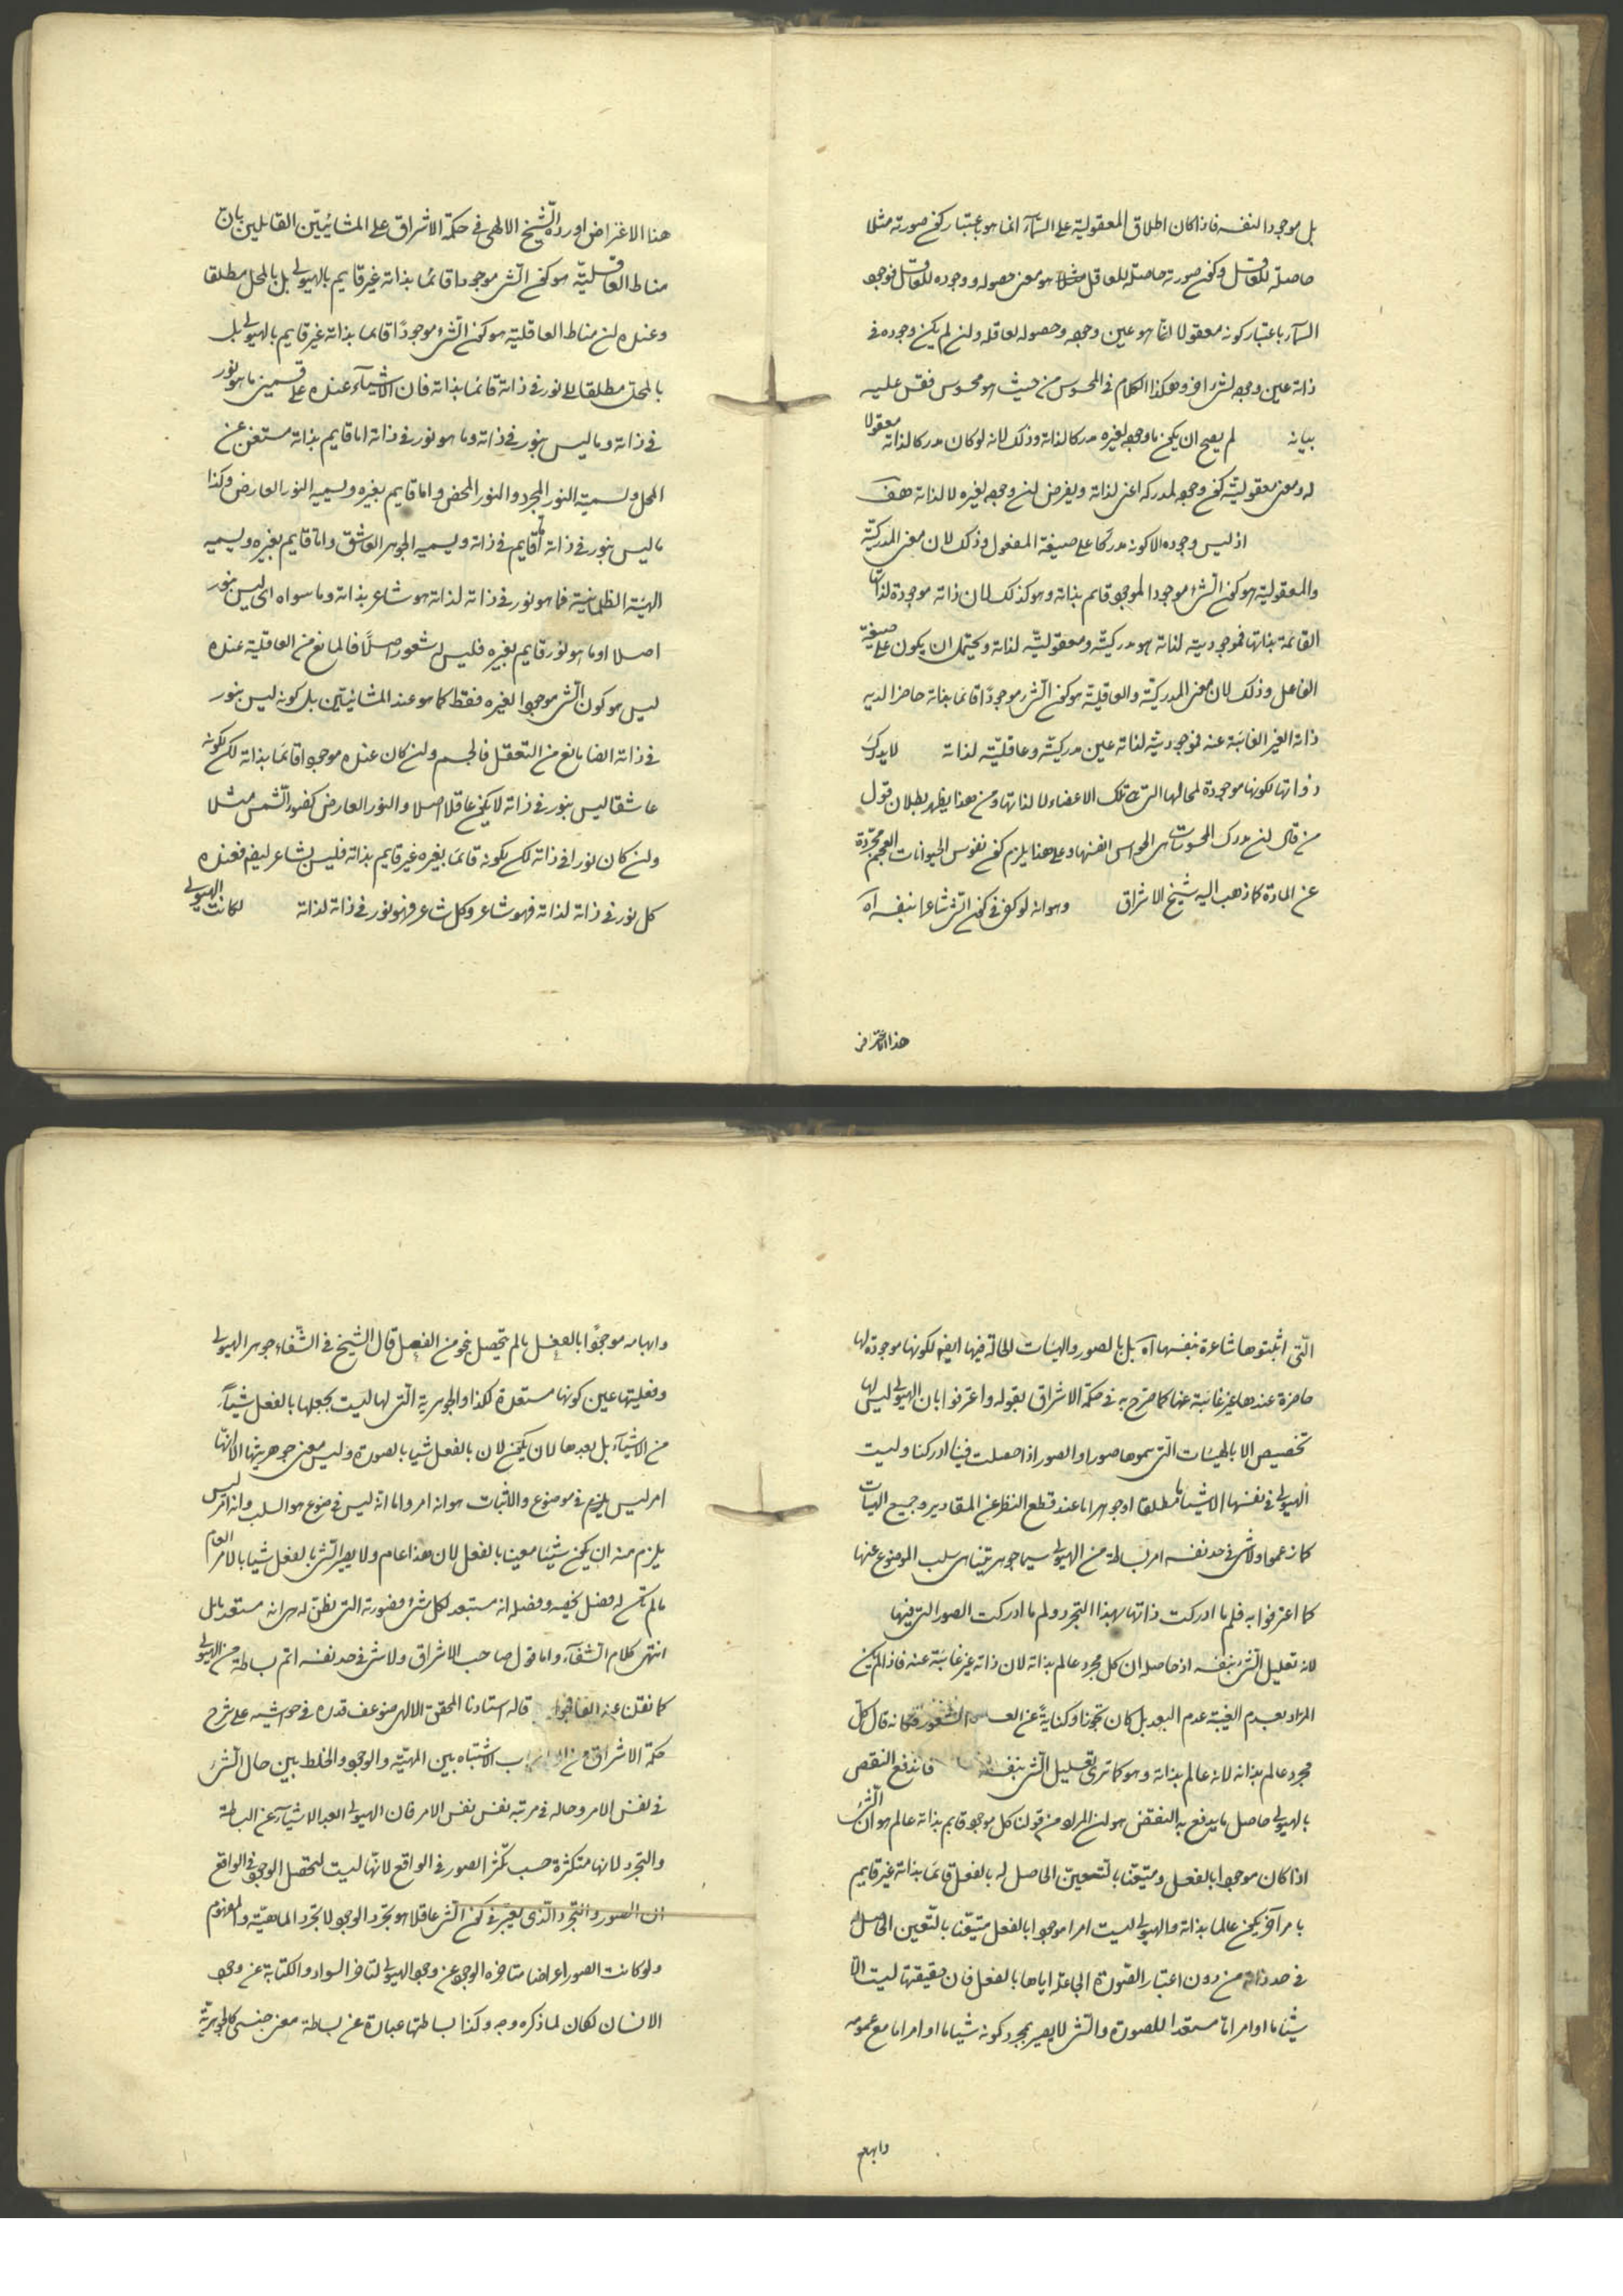 بل موجودا لنفسه فاذا كان اطلاق المعقولية على السماء انما هو باعتبار كون صورته مثلا
حاصلة للعاقل وكون صورته حاصلة للعاقل هو معنى حصوله ووجوده للعاقل فوجود
السماء باعتبار كونه معقولا انما هو عين وجوده وحصوله لعاقله وان لم يكن وجوده في
ذاته عين وجوده لشئ اخر وهكذا الكلام في المحسوس من حيث هو محسوس فقس عليه
بيانه لم يصح ان يكون ما وجوده لغيره مدركا لذاته وذلك لانه لو كان مدركا لذاته معقولا
له ومعنى معقوليته كون وجوده لمدركه اعنى لذاته ويفرض ان وجوده لغيره لا لذاته هف
اذ ليس وجوده الا كونه مدركا على صيغة المفعول وذلك لان معنى المدركية
والمعقولية هو كون الشئ موجودا لموجود قائم بذاته وهو كذلك لان ذاته موجودة لذاتها
القائمة بذاتها فموجوديته لذاته هو مدركيته ومعقوليته لذاته ويحتمل ان يكون على صيغة
الفاعل وذلك لان معنى المدركية والعاقلية هو كون الشئ موجودا قائما بذاته حاضرا لديه
ذاته الغير الغائبة عنه فموجوديته لذاته عين مدركيته وعاقليته لذاته لا يدرك
ذواتها لكونها موجودة لمحالها التى تلك الاعضاء لا لذاتها ومن هذا يظهر بطلان قول
من قال ان مدرك المحسوسات هى الحواس انفسها وعلى هذا يلزم كون نفوس الحيوانات العجم مجردة
عن المادة كما ذهب اليه شيخ الاشراق وهو انه لو كفى في كون الشئ شاعرا بنفسه اه
هذا الاعتراض
هذا الاعتراض اورده الشيخ الالهى في حكمة الاشراق على المشائيين القايلين بان
مناط العاقلية هو كون الشئ موجودا قائما بذاته غير قايم بالهيولى بل بالمحل مطلقا
وعنده ان مناط العاقلية هو كون الشئ موجودا قايما بذاته غير قايم بالهيولى بل
بالمحل مطلقا بل نور في ذاته قائما بذاته فان الاشياء عنده على قسمين ما هو نور
في ذاته وما ليس بنور في ذاته وما هو نور في ذاته اما قايم بذاته مستغن عن
المحل ويسميه النور المجرد والنور المحض واما قايم بغيره ويسميه النور العارض وكذا
ما ليس بنور في ذاته اما قايم في ذاته ويسميه الجوهر الغاسق واما قايم بغيره ويسميه
الهيئة الظلمانية فما هو نور في ذاته لذاته هو شاعر بذاته وما سواه اى ليس بنور
اصلا او ما هو نور قايم بغيره فليس له شعور اصلا فالمانع من العاقلية عنده
ليس هو كون الشئ موجودا لغيره فقط كما هو عند المشائيين بل كونه ليس بنور
في ذاته ايضا مانع من التعقل فالجسم وان كان عنده موجودا قائما بذاته لكن لكونه
غاسقا ليس بنور في ذاته لا يكون عاقلا اصلا والنور العارض كضوء الشمس مثلا
وان كان نورا في ذاته لكن لكونه قائما بغيره غير قايم بذاته فليس بشاعر ايضا فعنده
كل نور في ذاته لذاته فهو شاعر وكل شاعر فهو نور في ذاته لذاته لكانت الهيولى
التى اثبتوها شاعرة بنفسها اه بل بالصور والهيئات الحالة فيها ايضا لكونها موجودة لها
حاضرة عندها غير غائبة عنها كما صرح به في حكمة الاشراق بقوله واعترفوا بان الهيولى ليس لها
تخصيص الا بالهيئات التى سموها صورا والصور اذا حصلت فينا ادركنا وليست
الهيولى في نفسها الا شيئا ما مطلقا او جوهرا ما عند قطع النظر عن المقادير وجميع الهيئات
كما زعموا ولا شئ في حد نفسه اتم بساطة من الهيولى سيما جوهريتها هى سلب الموضوع عنها
كما اعترفوا به فلم ما ادركت ذاتها بهذا التجرد ولم ما ادركت الصور التى فيها
لانه تعليل الشئ بنفسه اذ حاصله ان كل مجرد عالم بذاته لان ذاته غير غائبة عنه فاذا لم يكن
المراد بعدم الغيبة عدم البعد بل كان تجوزا وكناية عن الشعور فكانه قال كل
مجرد عالم بذاته لانه عالم بذاته وهو كما ترى تعليل الشئ بنفسه فاندفع النقض
بالهيولى حاصل ما يدفع به النقض هو ان المراد من قولنا كل موجود قايم بذاته عالم هو ان الشئ
اذا كان موجودا بالفعل ومتعينا بالتعين الحاصل له بالفعل قائما بذاته غير قايم
بامر آخر يكون عالما بذاته والهيولى ليست امرا موجودا بالفعل متعينا بالتعين الحاصل له
في حد ذاته من دون اعتبار الصورة الجاعلة اياها بالفعل فان حقيقتها ليست الا
شيئا ما او امرا ما مستعدا للصورة والشئ لا يصير بمجرد كونه شيئا ما او امرا ما مع عمومه
وابهامه
وابهامه موجودا بالفعل ما لم يتحصل بنحو من الفصل قال الشيخ في الشفاء جوهر الهيولى
وفعليتها عين كونها مستعدة لكذا والجوهرية التى لها ليست تجعلها بالفعل شيئا
من الاشياء بل بعدها لان يكون لان بالفعل شيئا بالصورة وليس معنى جوهريتها الا انها
امر ليس في موضوع والاثبات هو انه امر واما انه ليس في موضوع هو السلب وانه امر ليس
يلزم منه ان يكون شيئا معينا بالفعل لان هذا عام ولا يصير الشئ بالفعل شيئا بالامر العام
ما لم تكن له فصل يخصه وفصله انه مستعد لكل شئ فصورته التى تظن له هى انه مستعد قابل
انتهى كلام الشفاء واما قول صاحب الاشراق ولا شئ في حد نفسه اتم بساطة من الهيولى
كما نقلنا عنه قاله استادنا المحقق الالهى ضوعف قدره في حواشيه على شرح
حكمة الاشراق من باب الاشتباه بين المهية والوجود والخلط بين حال الشئ
في نفس الامر وحاله في مرتبة نفس نفس الامر فان الهيولى ابعد الاشياء عن البساطة
والتجرد لانها متكثرة حسب تكثر الصور في الواقع لانها ليست لتحصل الوجود في الواقع
الا بالصور والتجرد الذى يعتبر في كون الشئ عاقلا هو تجرد الوجود لا تجرد الماهية والمفهوم
ولو كانت الصور اعراضا متأخرة الوجود عن وجود الهيولى لتأخر السواد والكتابة عن وجود
الانسان لكان لما ذكره وجه وكذا بساطتها عبارة عن بساطة معنى جنسى كالجوهرية